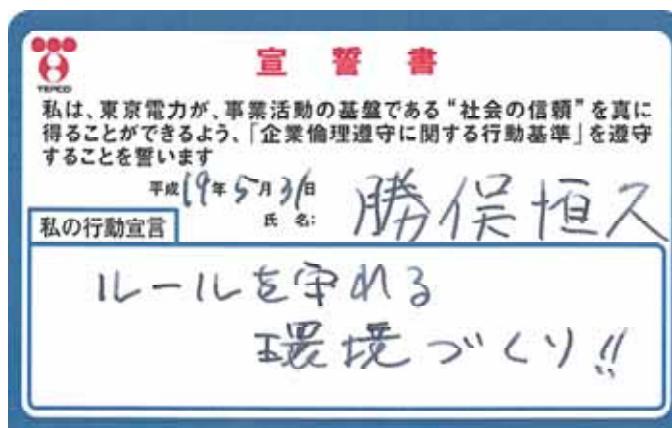 TEPCO
宣誓書
私は、東京電力が、事業活動の基盤である“社会の信頼”を真に
得ることができるよう、「企業倫理遵守に関する行動基準」を遵守
することを誓います
平成19年5月31日
氏名: 勝俣恒久
私の行動宣言
ルールを守れる
環境づくり!!